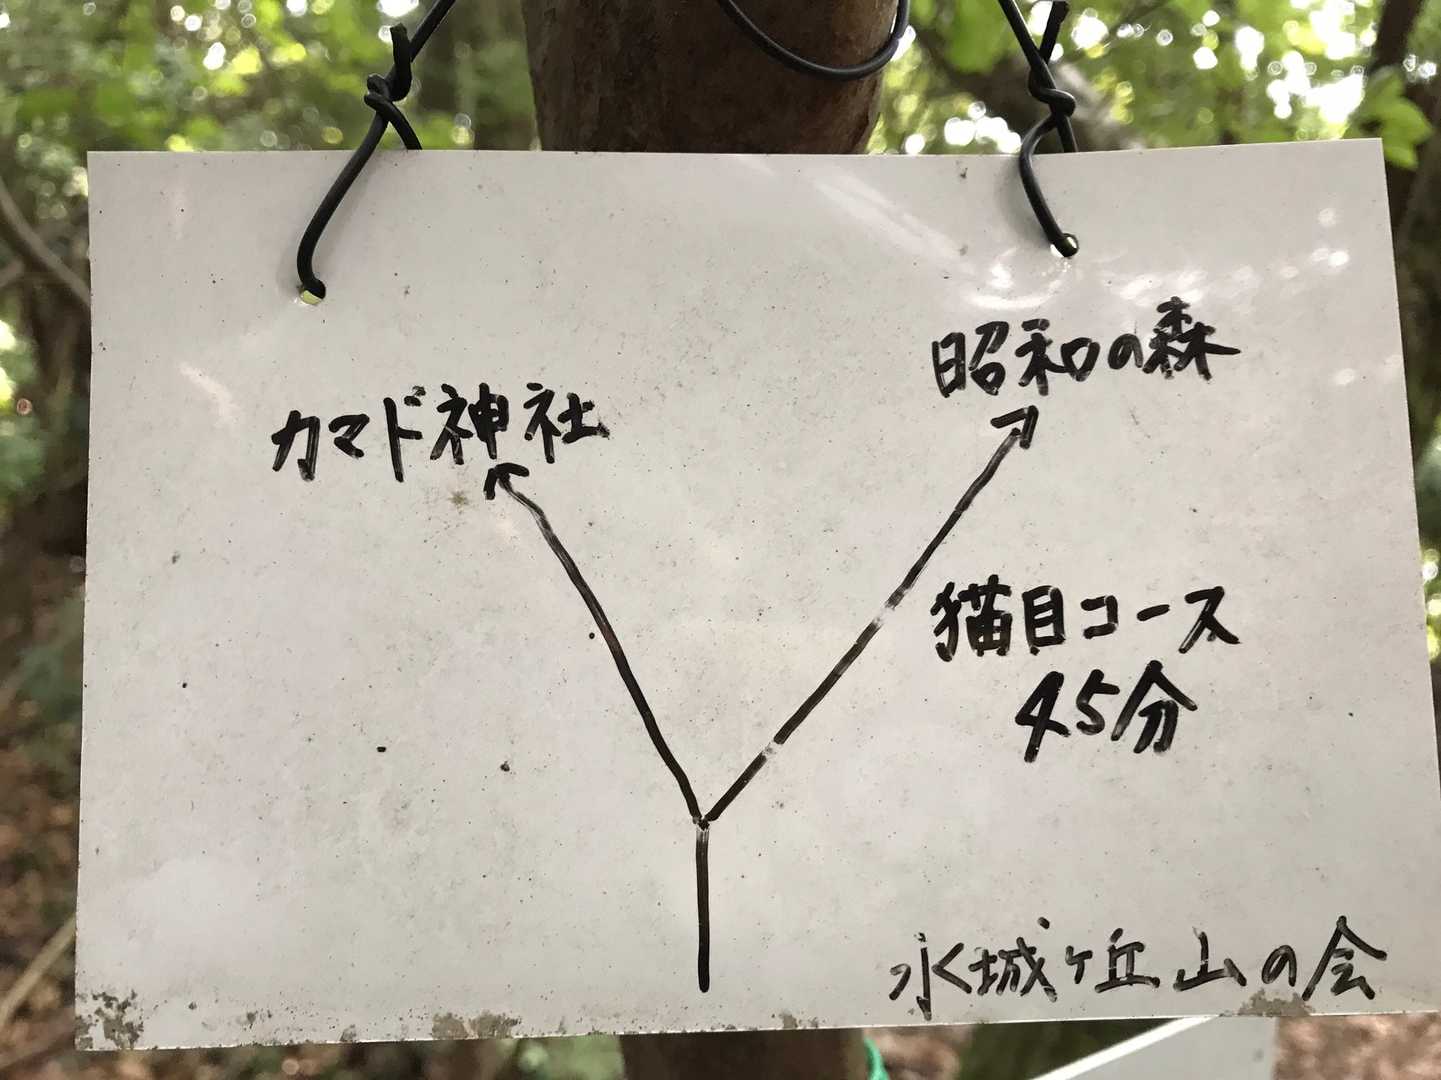 昭和の森
カマド神社
猫目コース
45分
水城ヶ丘山の会